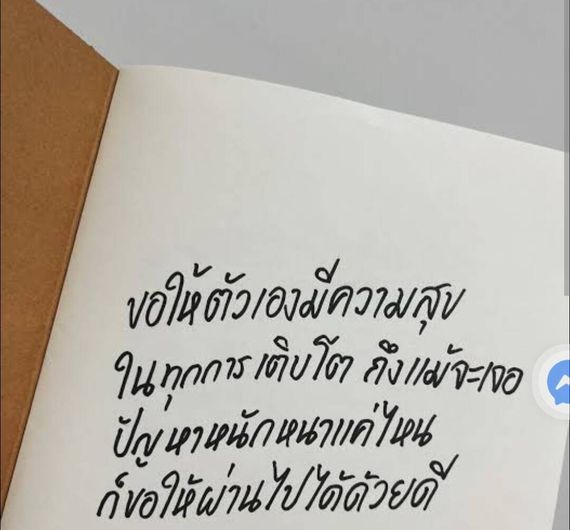 ขอให้ตัวเองมีความสุข
ในทุกการเติบโต ถึงแม้จะเจอ
ปัญหาหนักหนาแค่ไหน
ก็ขอให้ผ่านไปได้ด้วยดี